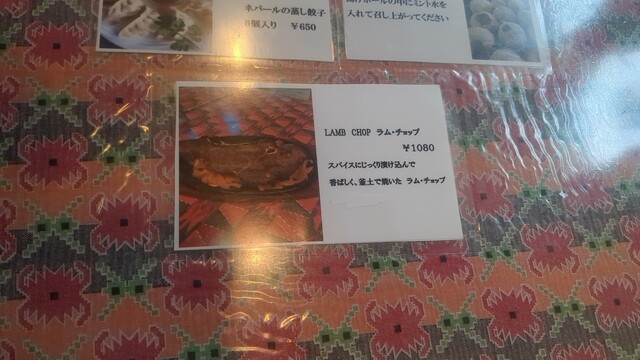 ネパールの蒸し餃子
6個入り ¥650
揚げボールの中にミント水を
入れて召し上がってください
LAMB CHOP ラム・チョップ
¥1080
スパイスにじっくり漬け込んで
香ばしく、釜土で焼いた ラム・チョップ